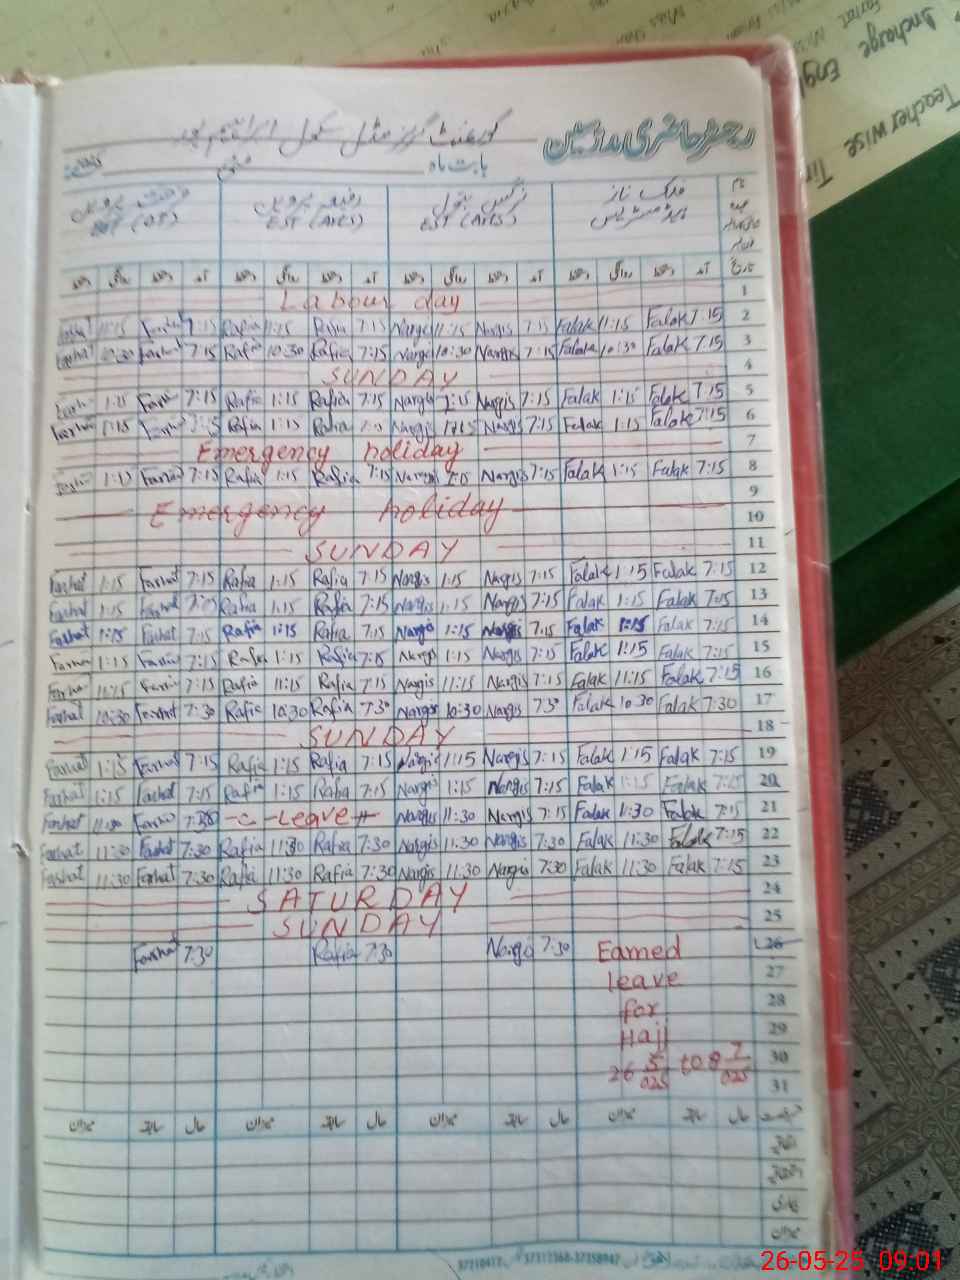 Teacher wise Tim
Incharge Eng
رجسٹر حاضری مدرسین
گورنمنٹ گرلز مڈل سکول
بابت ماہ مئی
فلک ناز نرگس بتول رفیعہ پروین فرحت پروین
ہیڈ مسٹریس EST (Arts) EST (Arts)
تاریخ آمد دستخط روانگی دستخط آمد دستخط روانگی دستخط آمد دستخط روانگی دستخط آمد دستخط روانگی دستخط
Labour day 1
Farhat 11:15 Farhat 7:15 Rafia 11:15 Rafia 7:15 Nargis 11:15 Nargis 7:15 Falak 11:15 Falak 7:15 2
Farhat 10:30 Farhat 7:15 Rafia 10:30 Rafia 7:15 Nargis 10:30 Nargis 7:15 Falak 10:30 Falak 7:15 3
SUNDAY 4
1:15 Farhat 7:15 Rafia 1:15 Rafia 7:15 Nargis 1:15 Nargis 7:15 Falak 1:15 Falak 7:15 5
Farhat 1:15 Farhat 7:15 Rafia 1:15 Rafia 7:15 Nargis 1:15 Nargis 7:15 Falak 1:15 Falak 7:15 6
Emergency holiday 7
1:15 Farhat 7:15 Rafia 1:15 Rafia 7:15 Nargis 1:15 Nargis 7:15 Falak 1:15 Falak 7:15 8
9
Emergency holiday 10
SUNDAY 11
Farhat 1:15 Farhat 7:15 Rafia 1:15 Rafia 7:15 Nargis 1:15 Nargis 7:15 Falak 1:15 Falak 7:15 12
Farhat 1:15 Farhat 7:15 Rafia 1:15 Rafia 7:15 Nargis 1:15 Nargis 7:15 Falak 1:15 Falak 7:15 13
Farhat 1:15 Farhat 7:15 Rafia 1:15 Rafia 7:15 Nargis 1:15 Nargis 7:15 Falak 1:15 Falak 7:15 14
Farhat 1:15 Farhat 7:15 Rafia 1:15 Rafia 7:15 Nargis 1:15 Nargis 7:15 Falak 1:15 Falak 7:15 15
Farhat 11:15 Farhat 7:15 Rafia 11:15 Rafia 7:15 Nargis 11:15 Nargis 7:15 Falak 11:15 Falak 7:15 16
Farhat 10:30 Farhat 7:30 Rafia 10:30 Rafia 7:30 Nargis 10:30 Nargis 7:30 Falak 10:30 Falak 7:30 17
SUNDAY 18
Farhat 1:15 Farhat 7:15 Rafia 1:15 Rafia 7:15 Nargis 1:15 Nargis 7:15 Falak 1:15 Falak 7:15 19
Farhat 1:15 Farhat 7:15 Rafia 1:15 Rafia 7:15 Nargis 1:15 Nargis 7:15 Falak 1:15 Falak 7:15 20
Farhat 11:30 Farhat 7:30 -c-Leave Nargis 11:30 Nargis 7:15 Falak 11:30 Falak 7:15 21
Farhat 11:30 Farhat 7:30 Rafia 11:30 Rafia 7:30 Nargis 11:30 Nargis 7:30 Falak 11:30 Falak 7:15 22
Farhat 11:30 Farhat 7:30 Rafia 11:30 Rafia 7:30 Nargis 11:30 Nargis 7:30 Falak 11:30 Falak 7:15 23
SATURDAY 24
SUNDAY 25
Farhat 7:30 Rafia 7:30 Nargis 7:30 Earned 26
leave 27
for 28
Hajj 29
26 5/025 to 8 7/025 30
31
سابقہ حال میزان سابقہ حال میزان سابقہ حال میزان سابقہ حال میزان
اتفاقیہ
میزان
26-05-25 09:01